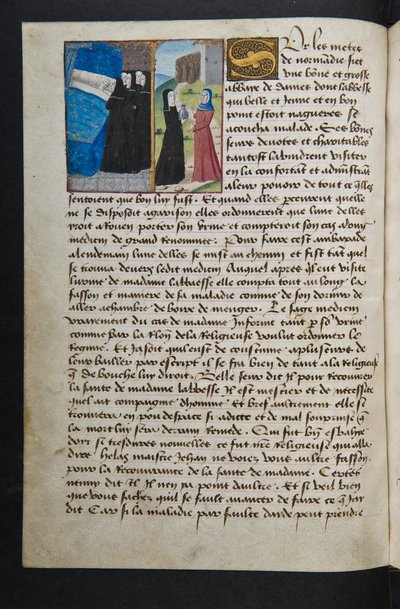 Sur les metes
de normadie siet
vne bõne et grosse
abbaye de dames dont labbesse
qui belle et jeune et en bon
point estoit nagueres se
acoucha malade. Ses bõnes
seurs deuotes et charitables
tantost la vindrent visiter
en la confortãt et administrãt
a leur pouoir de tout ce q̃lles
sentoient que bon luy fust. Et quand elles perceurent quelle
ne se disposoit a garison elles ordonnerent que lune delles
yroit a Rouen porter son vrine et compteroit son cas a vng
medicin de grand Renommee. Pour faire cest ambaxade
a lendemain lune delles se mist au chemin et fist tãt quel
se trouua deuers ledit medicin Auquel apres q̃l eut visite
lurine de madame labbesse elle compta tout au long la
fasson et maniere de sa maladie comme de son dormir de
aller a chambre de boire de menger. Le sage medicin
vrayement du cas de madame Informe tant p̱ sõ vrine
comme par la Rlon de la Religieuse voulut ordonner le
Regime. Et ja soit quil eust de coustume a plusieurs de
leur bailler par escript il se fia bien de tant a la Religieuse
q̃ de bouche luy diroit. Belle seur dit il pour Recouurer
la sante de madame labbesse Il est mestier et de necessite
quel ait compaignie dhomme Et bref aultrement elle se
trouuera en pou despace si attite et de mal sourprise q̃
la mort luy sera derrain Remede. Qui fut biẽ esbahye
doir si tresdures nouuelles ce fut nr̃e Religieuse qui alla
dire helas maistre Jehan ne voiez vous aultre fasson
pour la Recouurance de la sante de madame. Certes
nenny dit il Il ny en a point daultre. Et si veil bien
que vous sachez quil se fault auancer de faire ce q̃ jay
dit Car si la maladie par faulte dayde peut prendre